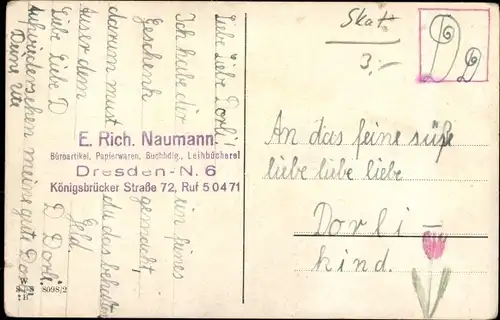 Liebe Liebe Dorli!
Ich habe dir ein feines
Geschenk gemacht,
darum must du das behalten
Auser dem Geld.
Liebe Liebe D D Dorli
Aufwiedersehen meine gute Dorli
Deine Ute
E. Rich. Naumann
Büroartikel, Papierwaren, Buchhdlg., Leihbücherei
Dresden-N. 6
Königsbrücker Straße 72, Ruf 50471
8098/2
Skat
3,-
An das feine süße
liebe liebe liebe
Dorli-
kind.